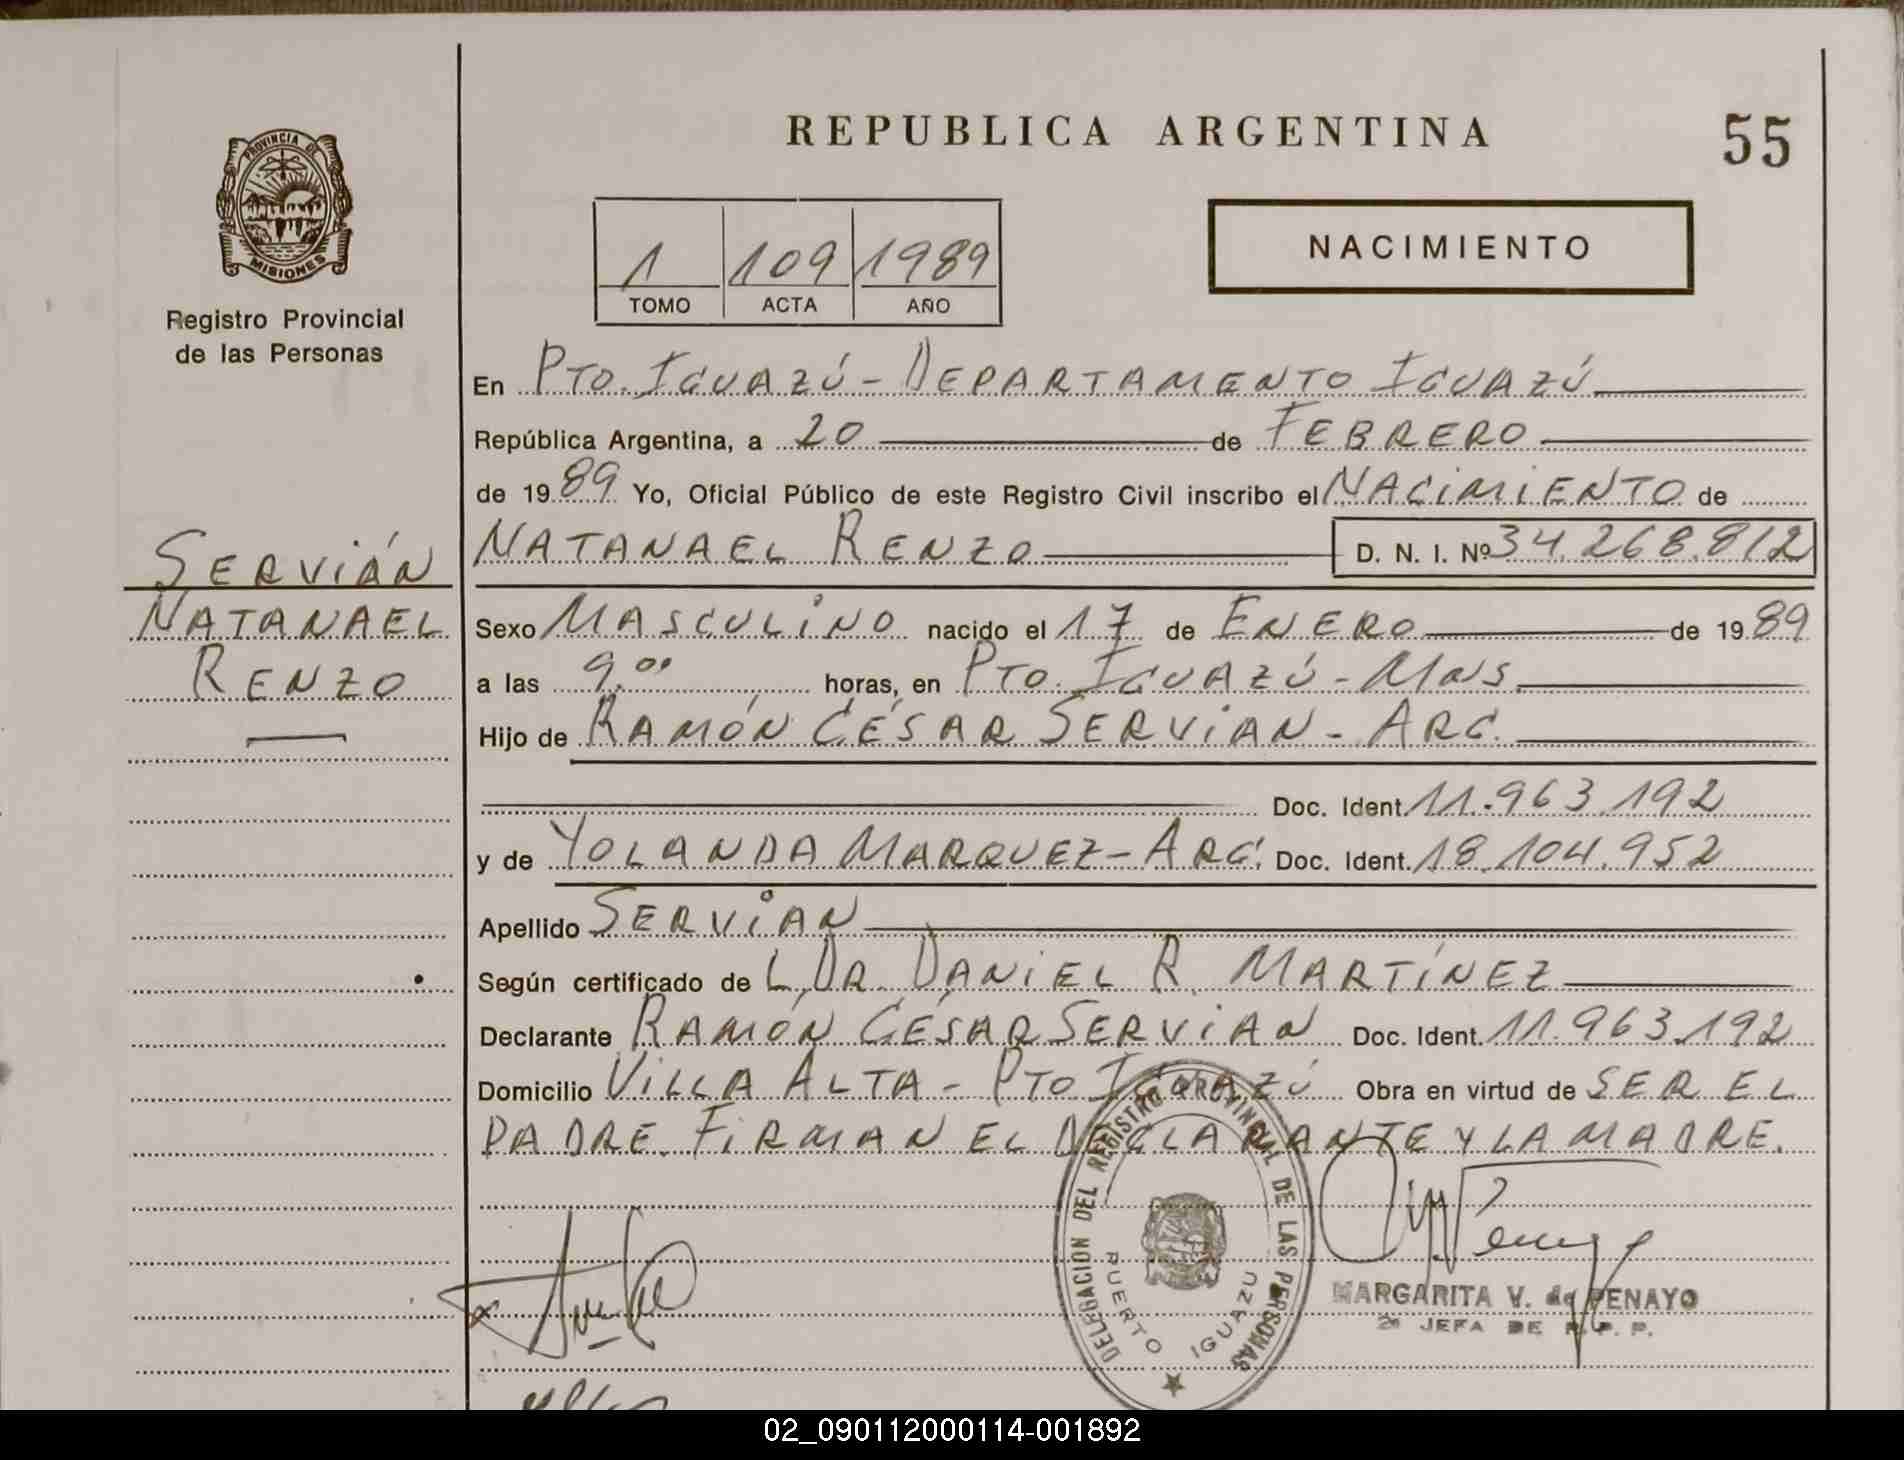 REPUBLICA ARGENTINA
55
PROVINCIA DE
MISIONES
Registro Provincial
de las Personas
1 109 1989
TOMO ACTA AÑO
NACIMIENTO
En PTO. IGUAZÚ - DEPARTAMENTO IGUAZÚ
República Argentina, a 20 de FEBRERO
de 1989 Yo, Oficial Público de este Registro Civil inscribo el NACIMIENTO de
NATANAEL RENZO D. N. I. Nº 34.268.812
SERVIÁN
NATANAEL
RENZO
Sexo MASCULINO nacido el 17 de ENERO de 1989
a las 9.00 horas, en PTO. IGUAZÚ - MNS.
Hijo de RAMÓN CÉSAR SERVIAN - ARG.
Doc. Ident. 11.963.192
y de YOLANDA MARQUEZ - ARG. Doc. Ident. 18.104.952
Apellido SERVIAN
Según certificado de L DR. DANIEL R. MARTÍNEZ
Declarante RAMÓN CÉSAR SERVIAN Doc. Ident. 11.963.192
Domicilio VILLA ALTA - PTO IGUAZÚ Obra en virtud de SER EL
PADRE. FIRMAN EL DECLARANTE Y LA MADRE.
DELEGACION DEL REGISTRO PROVINCIAL DE LAS PERSONAS
PUERTO IGUAZU
MARGARITA V. de PENAYO
JEFA DE R. P. P.
02_090112000114-001892